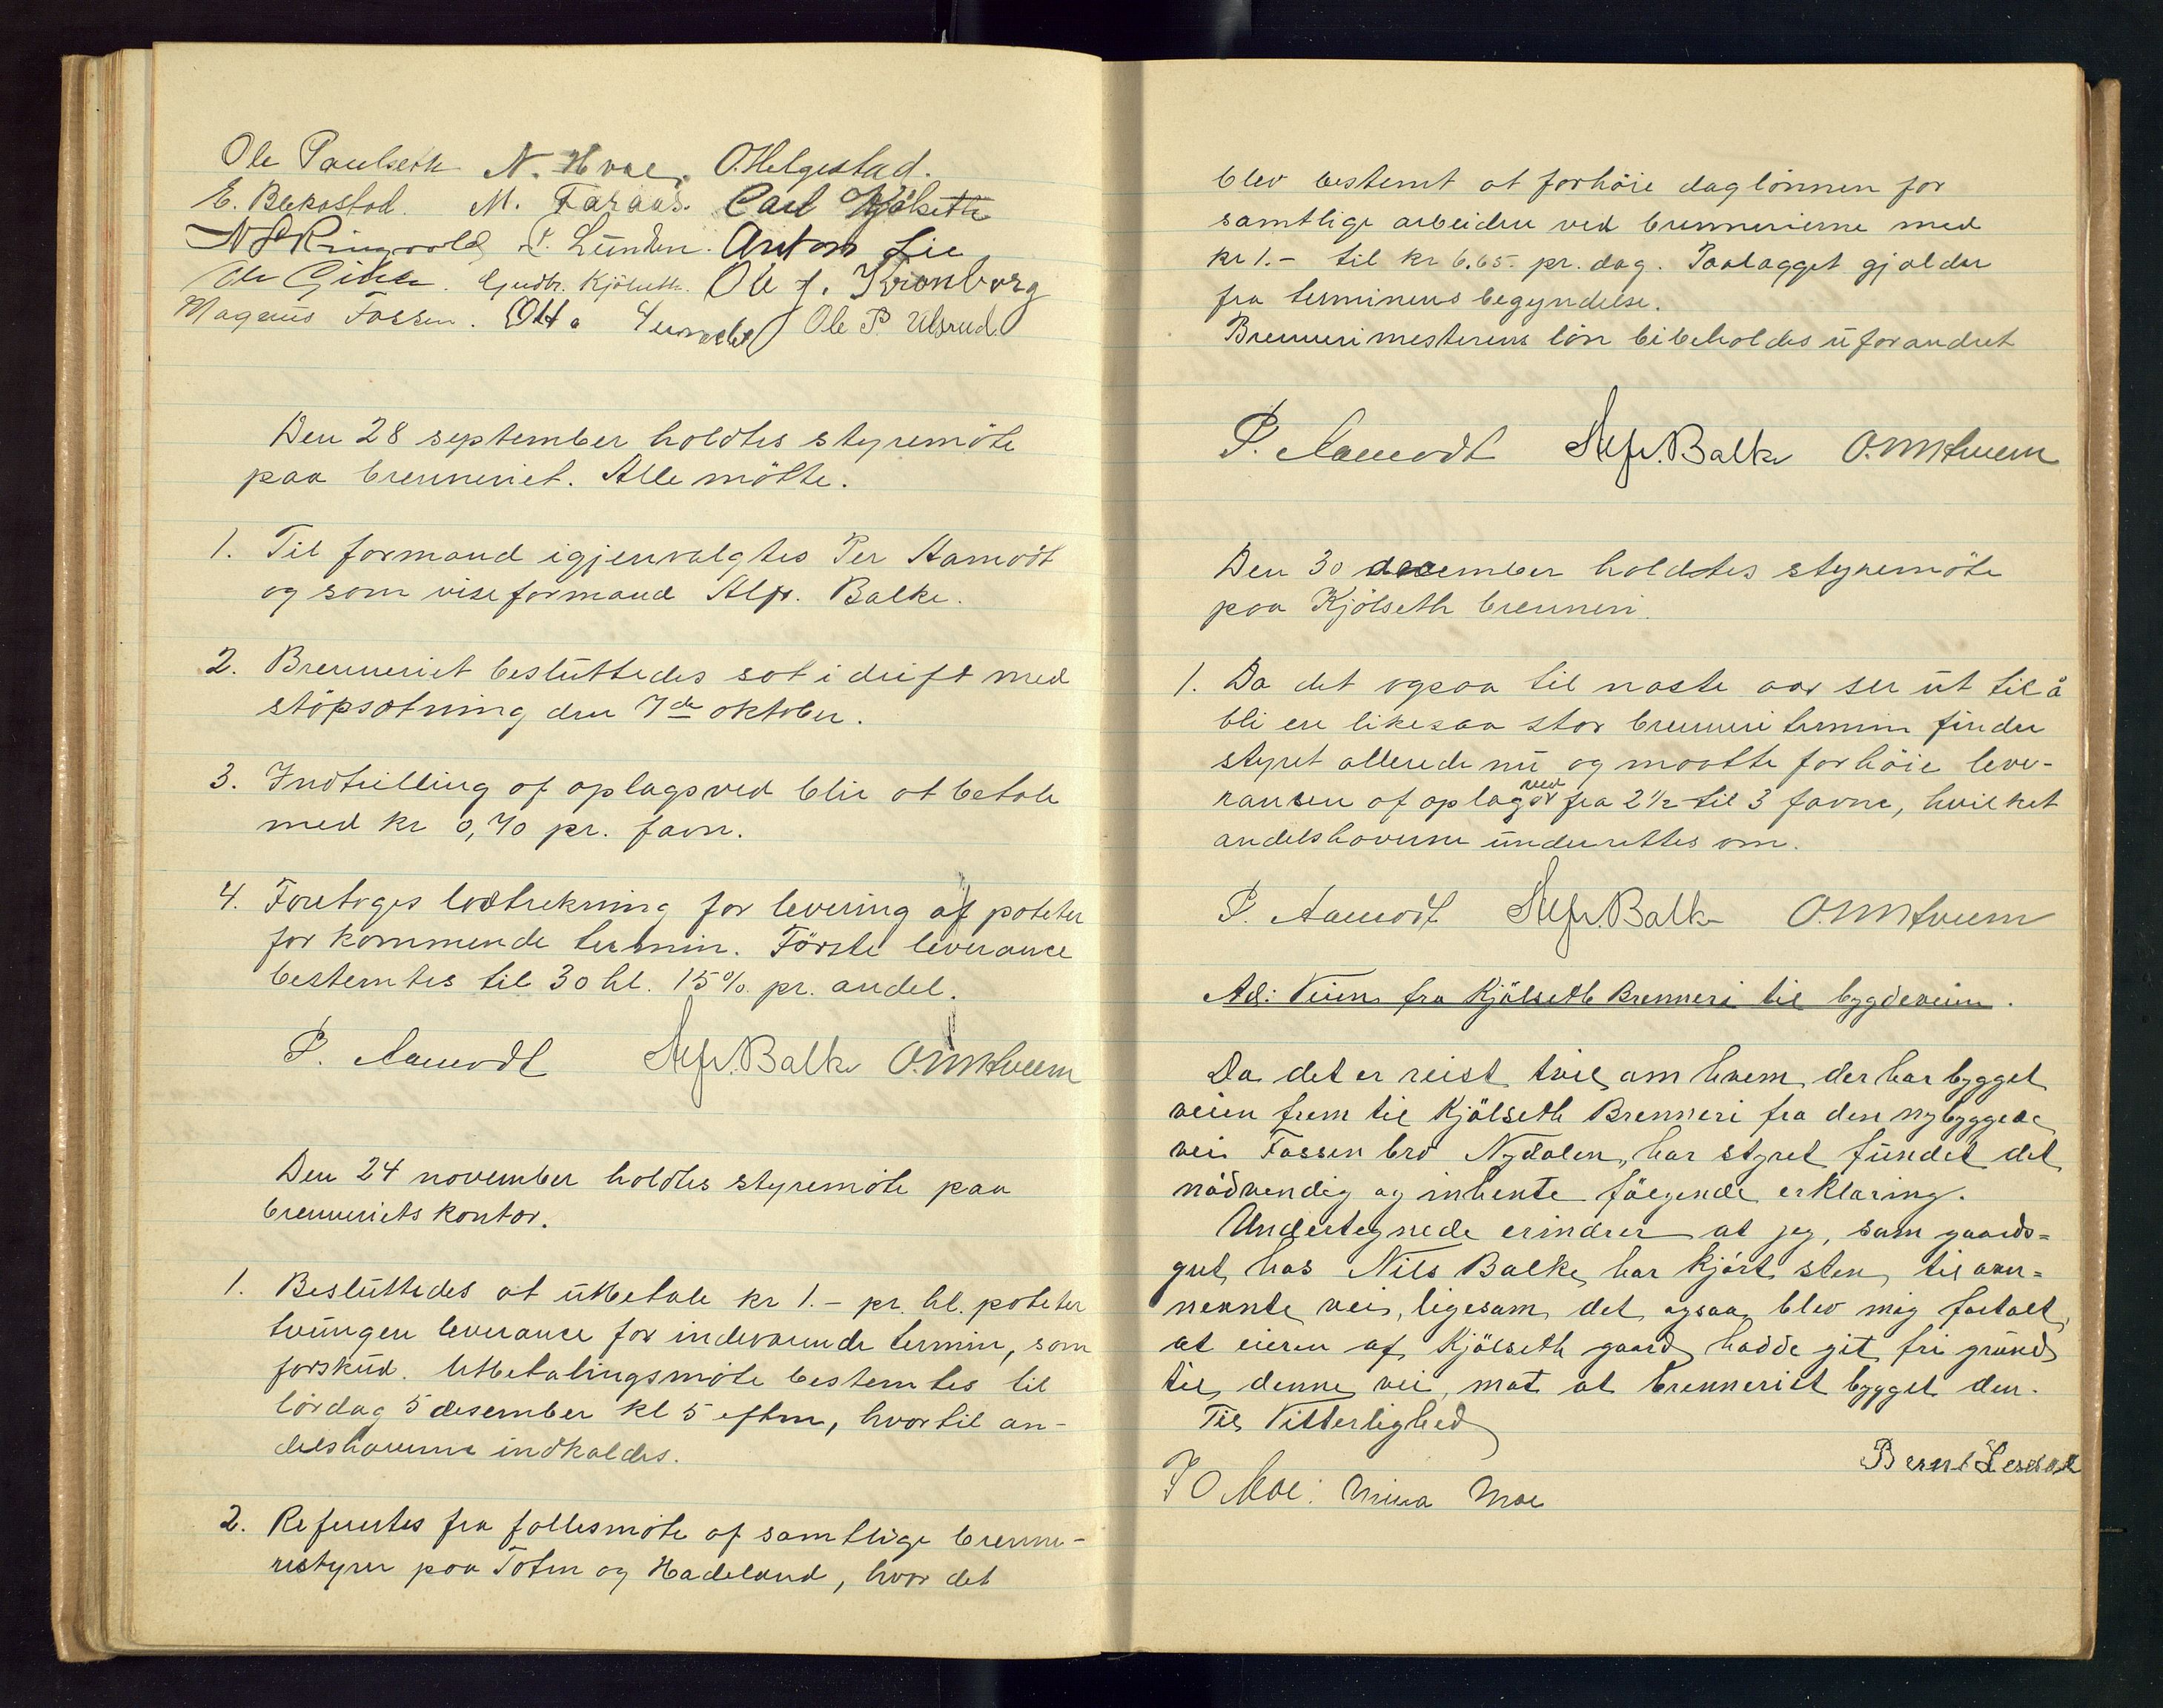 Ole Paulseth N. Hvae. O. Helgestad.
E. Bekkostad. M. Faraas. Carl Kjölseth
N P Ringvold P. Lunden. Anton Lie
Ole Gihle. Gudbr. Kjölseth. Ole J. Kronborg
Magnus Fossen. Otto Ole P. Ulsrud
Den 28 september holdtes styremöte
paa brenneriet. Alle mötte.
1. Til formand igjenvalgtes Per Aamodt
og som viseformand Alfr. Balke.
2. Brenneriet besluttedes sat i drift med
stöpsætning den 7de oktober.
3. Indtilling af oplagsved blir at betale
med kr 0,70 pr. favn.
4. Foretoges lodtrekning for levering af poteter
for kommende termin. Förste leverance
bestemtes til 30 hl. 15% pr. andel.
P. Aamodt Alfr. Balke O. M. Hveem
Den 24 november holdtes styremöte paa
brenneriets kontor.
1. Besluttedes at utbetale kr 1.- pr. hl. poteter
tvungen leverance for indeværende termin, som
forskud. Utbetalingsmöte bestemtes til
lördag 5 desember kl 5 eftm, hvortil an-
delshaverne indkaldes.
2. Refertes fra fællesmöte af samtlige brenne-
ristyrer paa Toten og Hadeland, hvor det
blev bestemt at forhöie daglönnen for
samtlige arbeidere ved brennerierne med
kr 1.- til kr 6.65. pr. dag. Paalægget gjælder
fra terminens begyndelse.
Brennerimesterens lön bibeholdes uforandret
P. Aamodt Alfr. Balke O. M. Hveem
Den 30 december holdtes styremöte
paa Kjölseth brenneri.
1. Da det ogsaa til næste aar ser ut til å
bli en likesaa stor brenneri termin finder
styret allerede nu og maatte forhöie leve-
ransen af oplagsved fra 2 1/2 til 3 favne, hvilket
andelshaverne underrettes om.
P. Aamodt Alfr. Balke O. M. Hveem
Ad: Veien fra Kjölseth Brenneri til bygdeveien.
Da det er reist tvil om hvem der har bygget
veien frem til Kjölseth Brenneri fra den nybyggede
vei Fossen bro Nydalen, har styret fundet det
nödvendig og inhente fölgende erklæring.
Undertegnede erindrer at jeg, som gaards=
gut hos Nils Balke har kjört sten til oven=
nevnte vei, ligesom det ogsaa blev mig fortalt,
at eieren af Kjölseth gaard hadde git fri grund
til denne vei, mot at brenneriet bygget den.
Til Vitterlighed
Bernt
J O Moe. Mina Moe